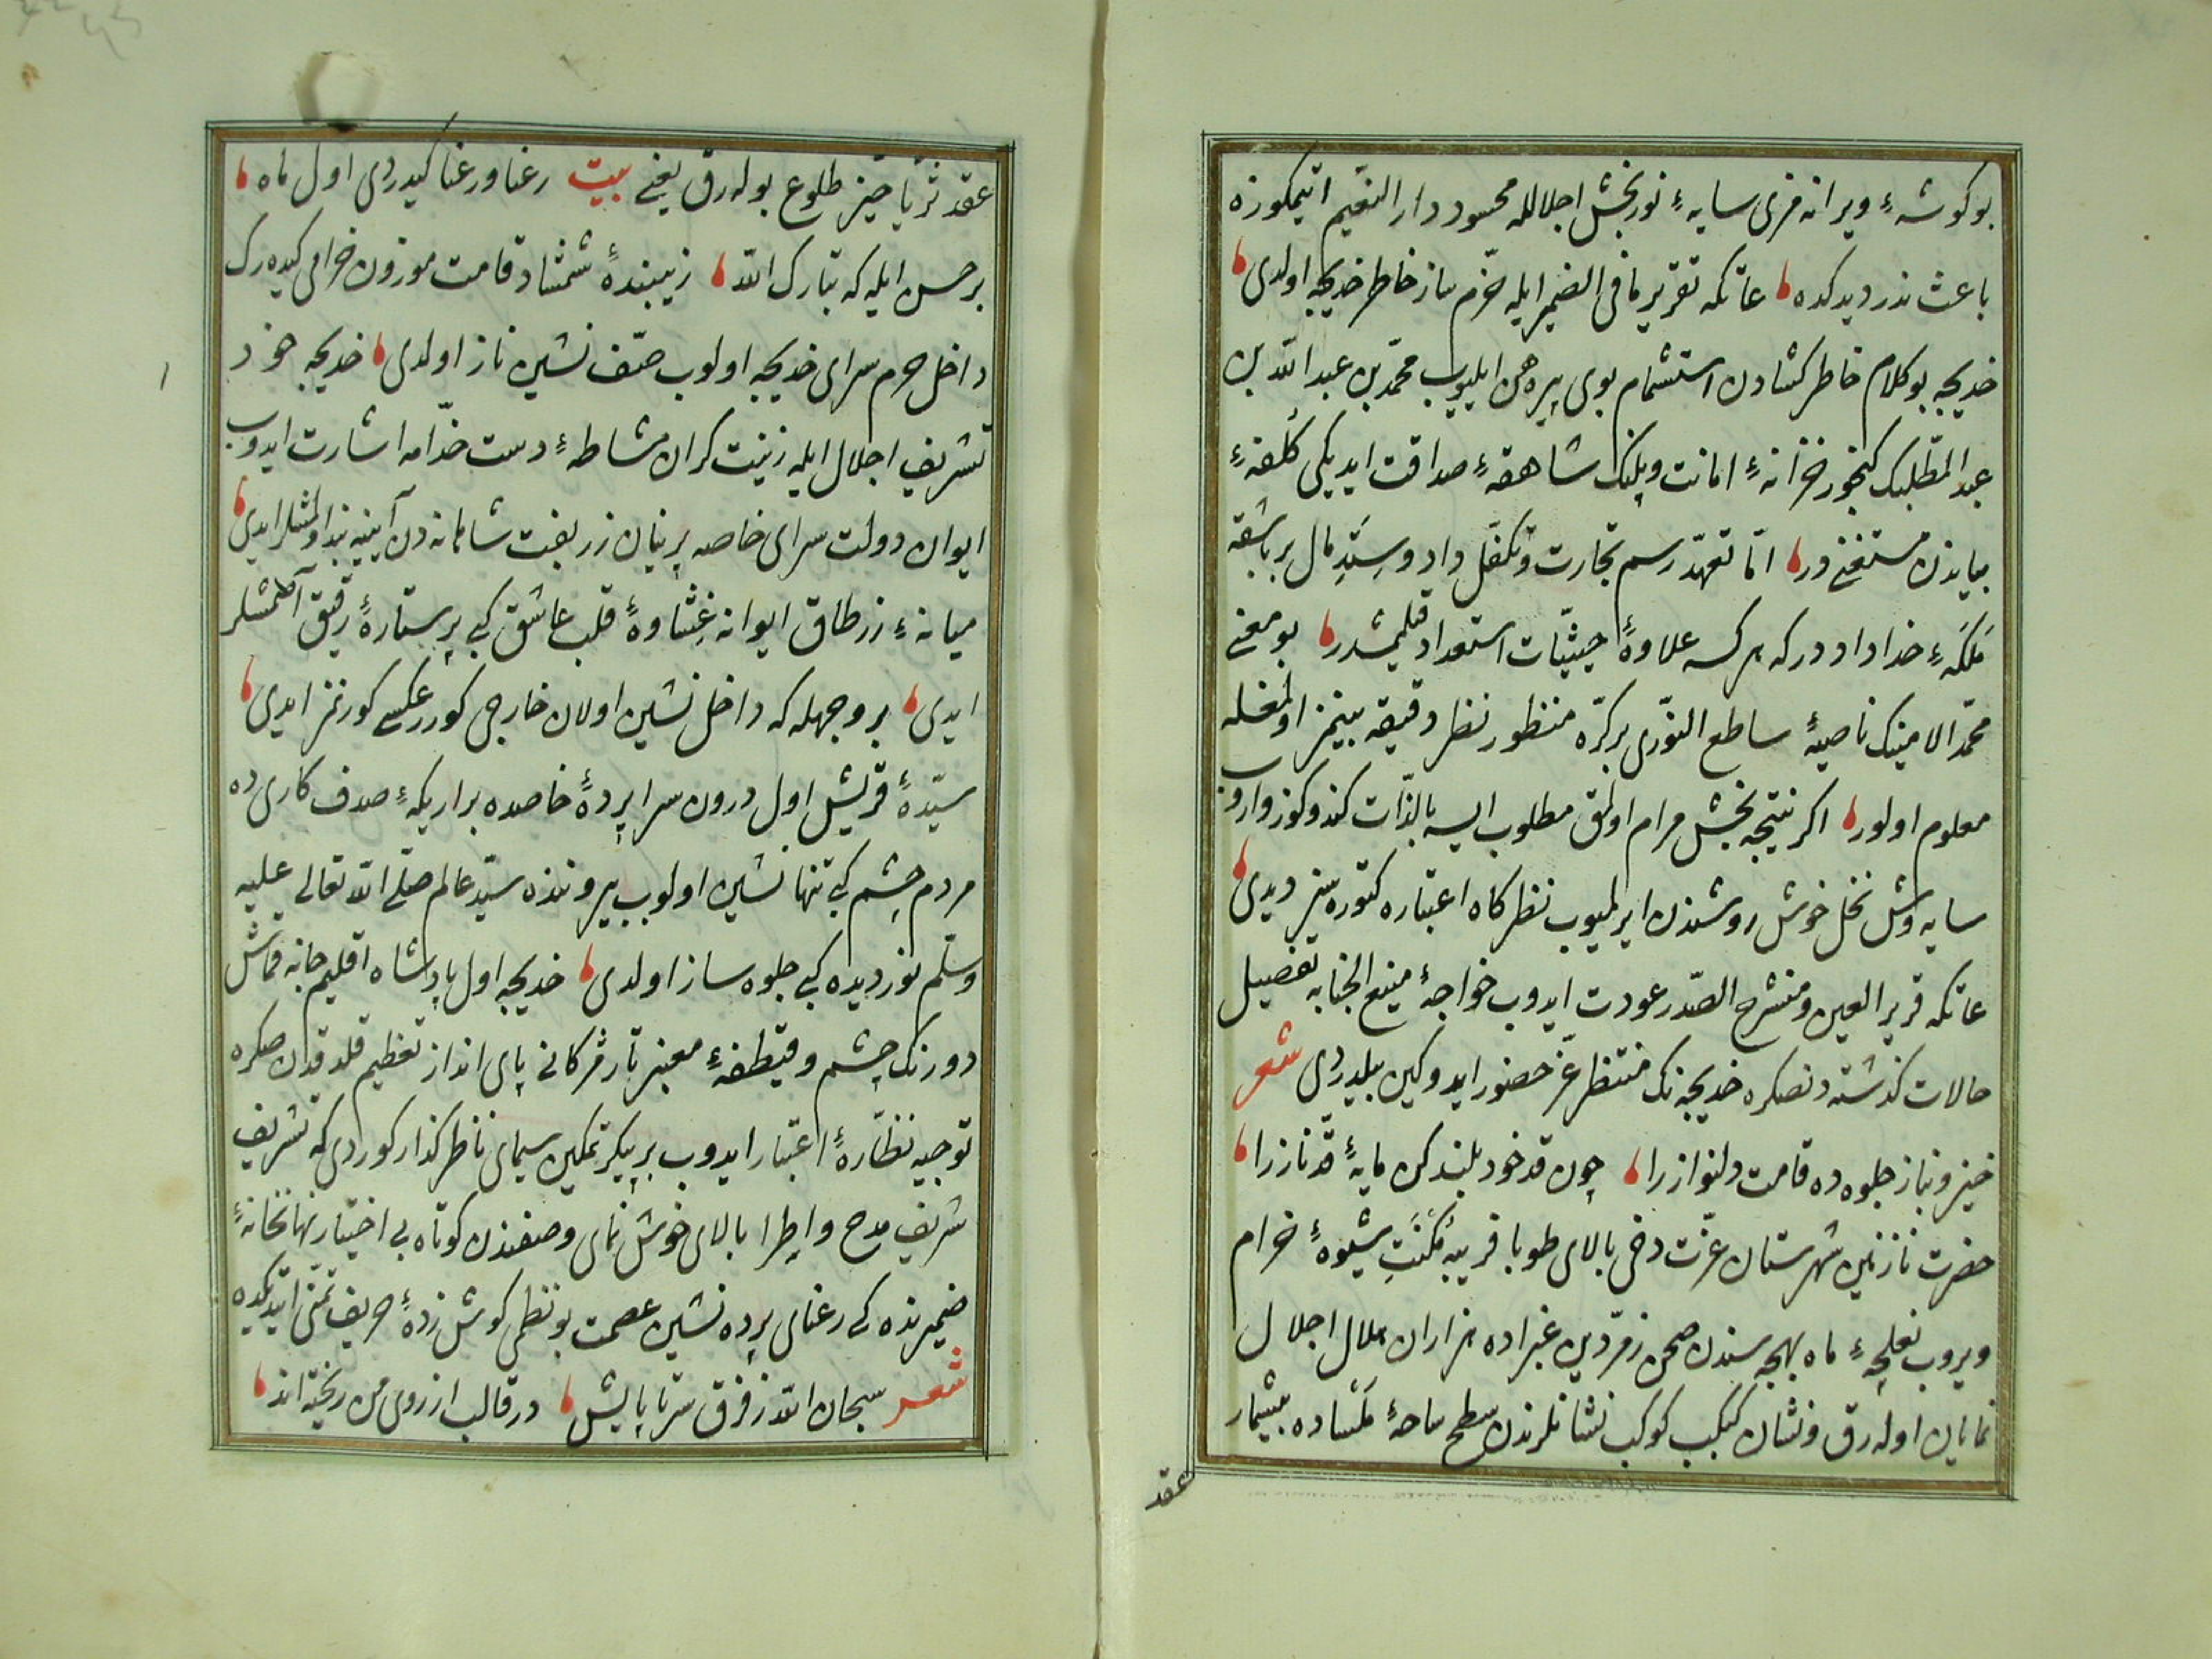 بو کوشهٔ ویرانه فری سایهٔ نوربخش اجلالله محسود دار النعیم اتیمکوزه
باعث ندر دیدکده عاتکه تقریر ما فی الضمیر ایله خرّم ساز خاطر خدیجه اولدی
خدیجه بو کلام خاطر کشادن استشمام بوی پیرهن ایلیوب محمّد بن عبد الله بن
عبد المطّلبک کنجور خزانهٔ امانت و پلنک شاهقهٔ صداقت ایدیکی کلفهٔ
بیاندن مستغنیدر امّا تعهّد رسم تجارت و تکفّل داد و ستد مال بر باشقه
ملکهٔ خداداددر که هر کسه علاوهٔ حیثیّات استعداد قلنمشدر بو معنی
محمّد الامینک ناصیهٔ ساطع النّوری بر کرّه منظور نظر دقیقه بینمز اولمغله
معلوم اولور اکر نتیجه بخش مرام اولمق مطلوب ایسه بالذّات کندوکوز واروب
سایه وش نخل خوش روشندن ایرلمیوب نظرکاه اعتباره کتوره سز دیدی
عاتکه قریر العین و منشرح الصّدر عودت ایدوب خواجهٔ منیع الجنابه تفصیل
حالات کذشته دنصکره خدیجه نک منتظر عزّ حضور ایدوکین بیلدردی شعر
خیز و بناز جلوه ده قامت دلنواز را چون قد خود بلند کن پایهٔ قدّ ناز را
حضرت نازنین شهرستان عزّت دخی بالای طوبا فریبه مکنت شیوهٔ خرام
ویروب نعلچهٔ ماه بهجه سندن صحن زمرّدین غبراده هزاران هلال اجلال
نمایان اوله رق و نشان کبکب کوکب نشانلرندن سطح ساحهٔ ممشاده بیشمار
عقد
عقد ثریّا خیز طلوع بوله رق یعنی بیت رعنا و رعنا کیدردی اول ماه
بر حسن ایله که تبارک الله زیبندهٔ شمشاد قامت موزون خرامی کیده رک
داخل حرم سرای خدیجه اولوب صفّ نشین ناز اولدی خدیجه خود
تشریف اجلال ایله زینت کران مشاطهٔ دست خدّامه اشارت ایدوب
ایوان دولت سرای خاصه پرنیان زربفت شاهانه دن آیینه بند اولمشلر ایدی
میانهٔ زر طاق ایوانه غشاوهٔ قلب عاشق کبی پرستارهٔ رقیق آصلمشلر
ایدی بر وجهله که داخل نشین اولان خارجی کورر عکسی کورنمز ایدی
سیّدهٔ قریش اول درون سراپردهٔ خاصده بر اریکهٔ صدف کاری ده
مردم چشم کبی تنها نشین اولوب بیرونده سیّد عالم صلّی الله تعالی علیه
وسلّم نور دیده کبی جلوه ساز اولدی خدیجه اول پادشاه اقلیم جانه قماش
دورنک چشم و قیطفهٔ معنبر تار مژکانی پای انداز تعظیم قلدقدن صکره
توجیه نظّارهٔ اعتبار ایدوب بر پیکر تمکین سیمای ناظر کذار کوردی که تشریف
شریف مدح و اطرا بالای خوش نمای وصفندن کوتاه بی اختیار نهانخانهٔ
ضمیرنده کی رعنای پرده نشین عصمت بو نظمی کوش زدهٔ حریف تمنّی ایتدیکده
شعر سبحان الله ز فرق سر تا پایش در قالب آرزوی من ریخته اند